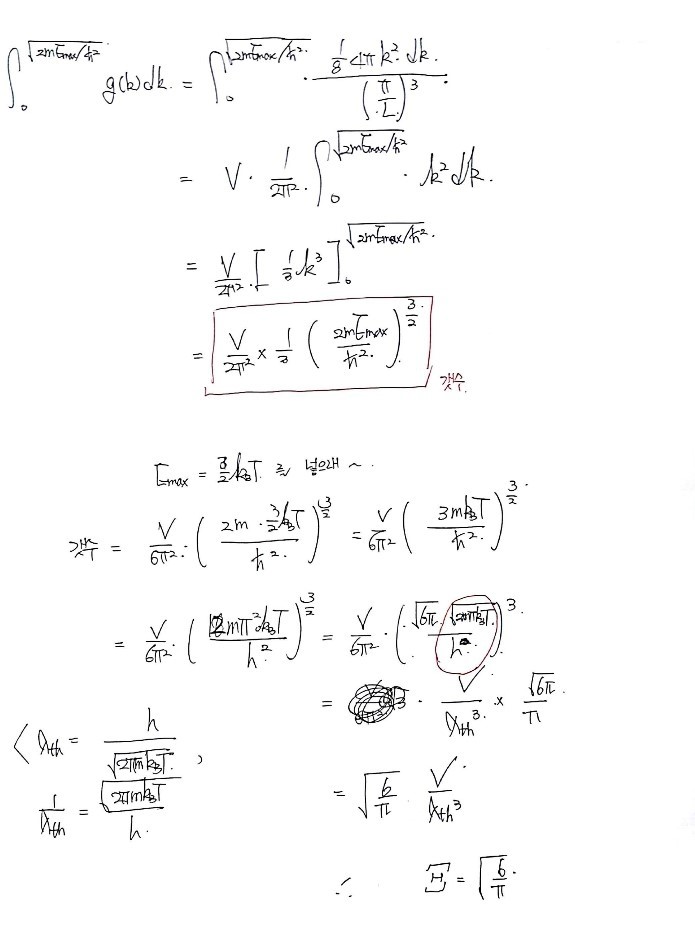 ∫₀^{√(2mE_max/ħ²)} g(k)dk = ∫₀^{√(2mE_max/ħ²)} · (1/8 4πk² dk) / (π/L)³
= V · 1/(2π²) ∫₀^{√(2mE_max/ħ²)} · k² dk.
= V/(2π²) · [1/3 k³]₀^{√(2mE_max/ħ²)}
= V/(2π²) × 1/3 (2mE_max/ħ²)^{3/2} 갯수.
E_max = 3/2 k_BT 를 넣으면 ~
갯수 = V/(6π²) · (2m · 3/2 k_BT / ħ²)^{3/2} = V/(6π²) (3mk_BT / ħ²)^{3/2}
= V/(6π²) · (12mπ²k_BT / h²)^{3/2} = V/(6π²) · (√6π √(2mπk_BT) / h)³
= · V/λ_th³ × √6π/π
< λ_th = h/√(2πmk_BT) ,
1/λ_th = √(2πmk_BT)/h
= √(6/π) V/λ_th³
∴ Ξ = √(6/π)